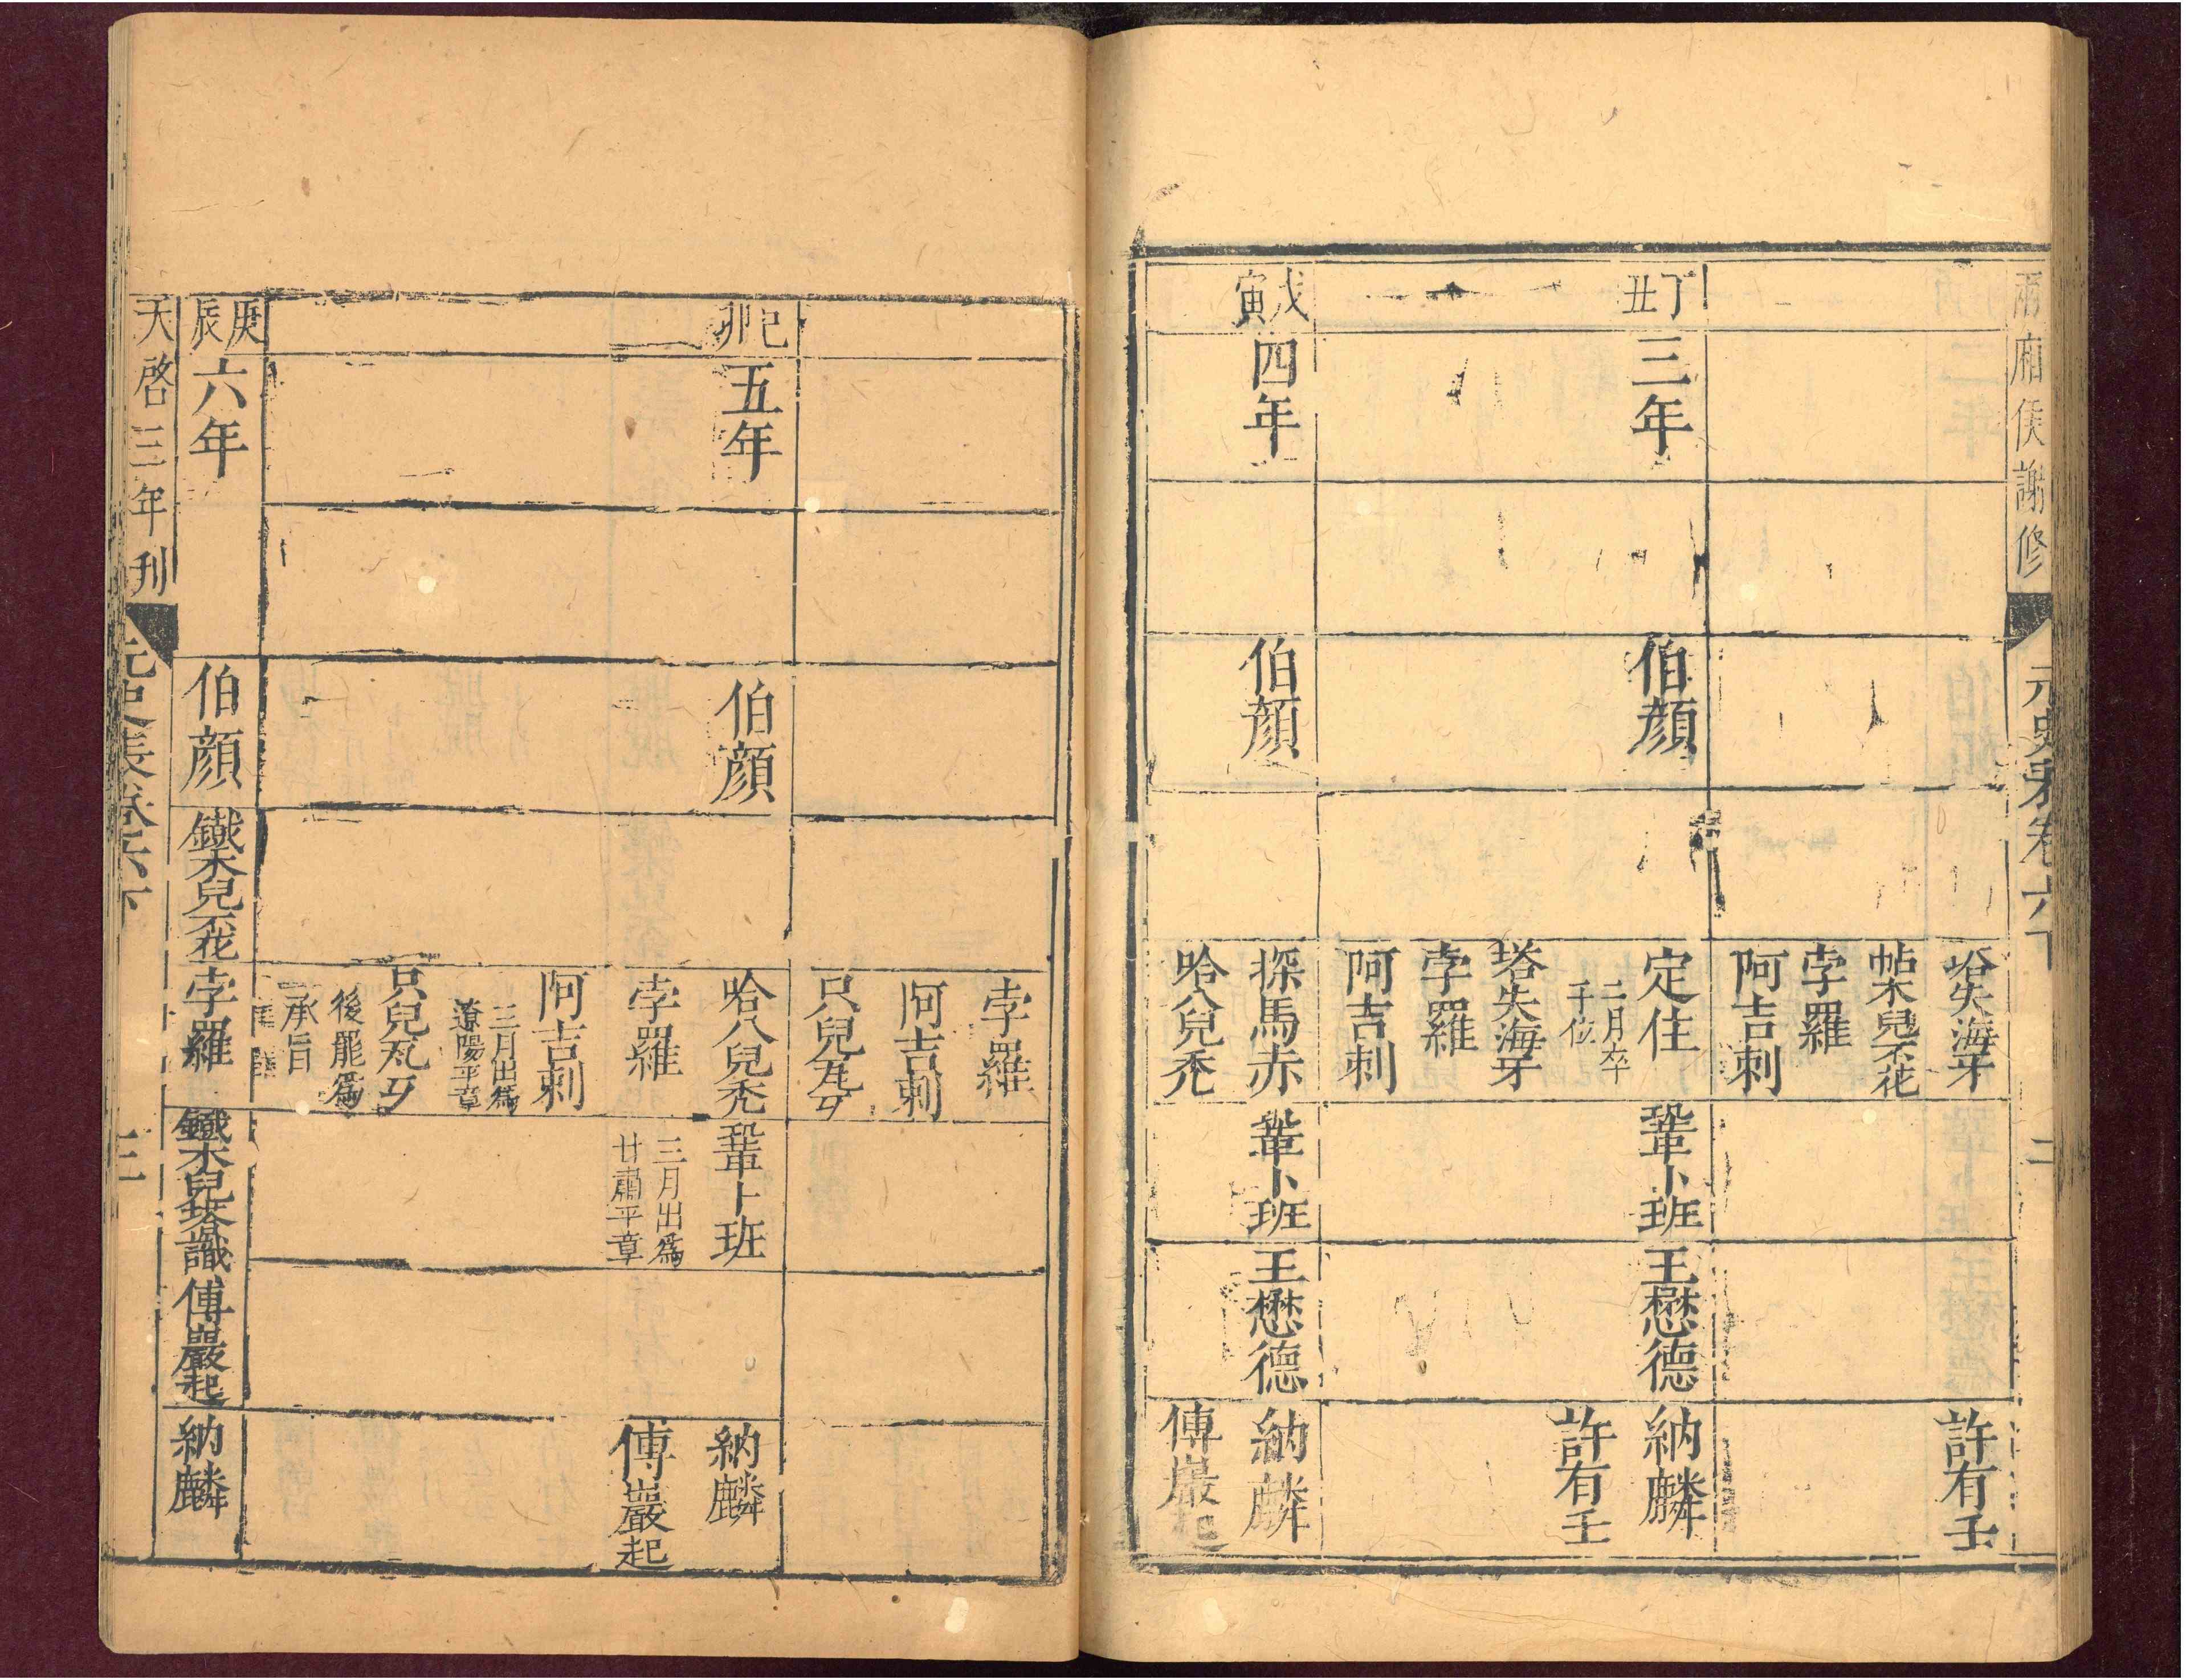 兩廂俟謝修
元史表卷六下
二
塔失海牙
帖木兒不花
孛羅
阿吉剌
許有壬
丁丑
三年
伯顏
定住
二月卒
于位
塔失海牙
孛羅
阿吉剌
鞏卜班
王懋德
納麟
許有壬
戊寅
四年
伯顏
探馬赤
哈八兒禿
鞏卜班
王懋德
納麟
傅巖起
孛羅
阿吉剌
只兒瓦歹
己卯
五年
伯顏
哈八兒禿
孛羅
阿吉剌
三月出爲
遼陽平章
只兒瓦歹
後罷爲
承旨
鞏卜班
三月出爲
甘肅平章
納麟
傅巖起
庚辰
六年
伯顏
鐵木兒不花
孛羅
鐵木兒塔識
傅巖起
納麟
天啓三年刊
元史表卷六下
三